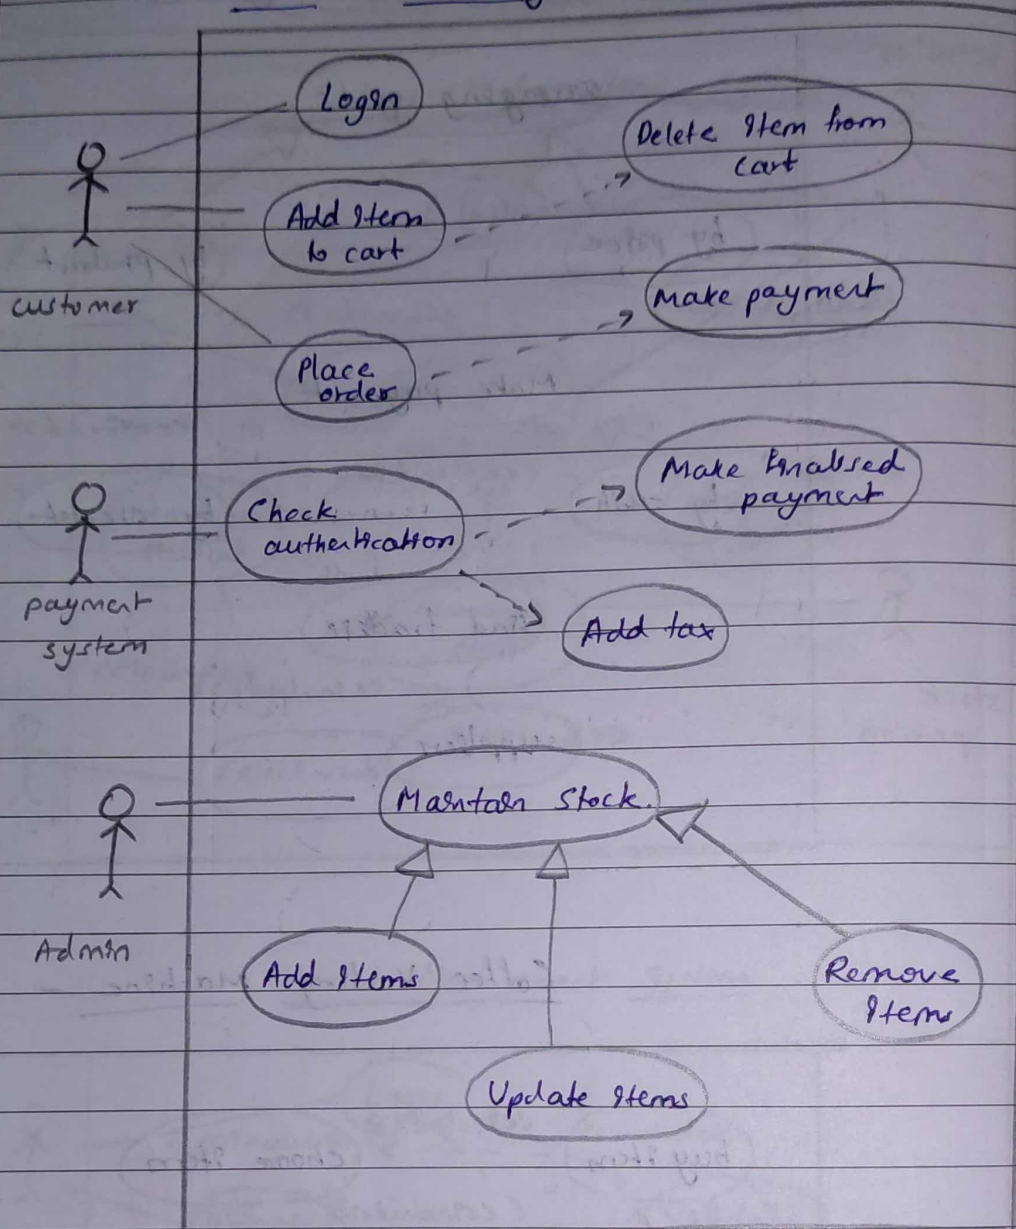 Login
Delete Item from
cart
Add Item
to cart
customer
Make payment
Place
order
Make Finalised
payment
Check
authentication
payment
system
Add tax
Maintain Stock.
Admin
Add Items
Remove
Items
Update Items